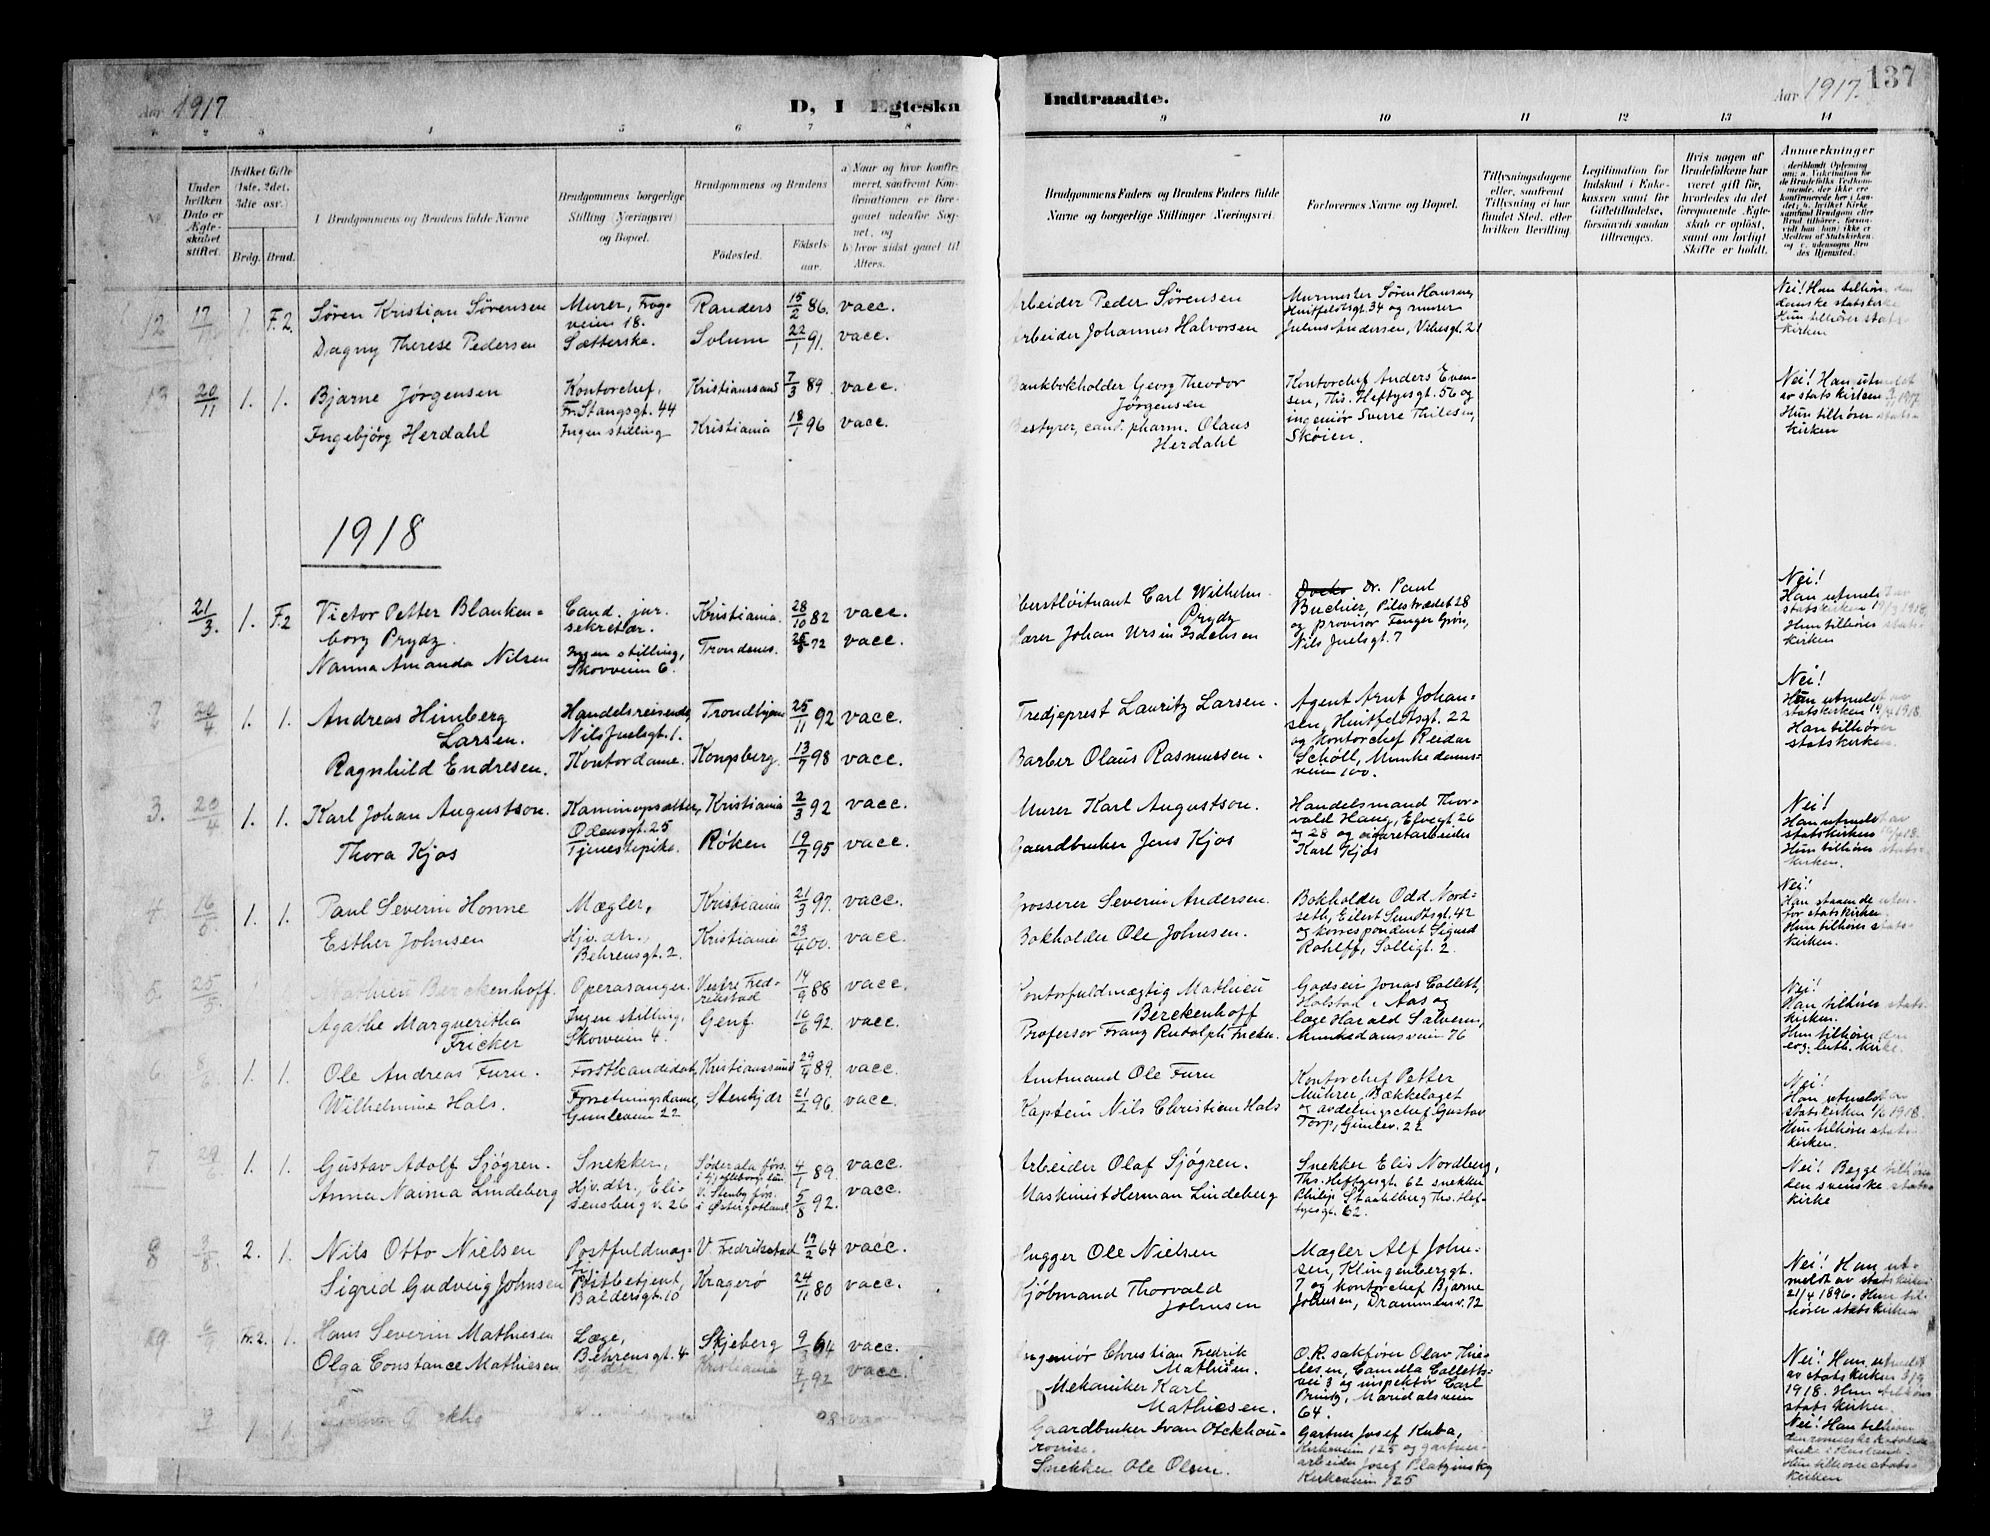 Aar 1917
D, I Egteska
Indtraadte.
Aar 1917.
137
2 3 4 5 6 7 8 9 10 11 12 13 14
Nr.
Under hvilken Dato er Ægteskabet stiftet.
Hvilket Gifte (1ste, 2det, 3die osv.)
Brdg. Brud.
Brudgommens og Brudens fulde Navne
Brudgommens borgerlige Stilling (Næringsvei) og Bopæl.
Brudgommens og Brudens
Fødested.
Fødselsaar.
a) Naar og hvor konfirmeret, saafremt Konfirmationen er foregaaet udenfor Sognet, og
b) hvor sidst gaaet til Alters.
Brudgommens Faders og Brudens Faders fulde Navne og borgerlige Stillinger (Næringsvei).
Forlovernes Navne og Bopæl.
Tillysningsdagene eller, saafremt Tillysning ei har fundet Sted, efter hvilken Bevilling.
Legitimation for Indskud i Enkekassen samt for Giftetilladelse, forsaavidt saadan tiltrænges.
Hvis nogen af Brudefolkene har været gift før, hvorledes da det foregaaende Ægteskab er opløst, samt om lovligt Skifte er holdt.
Anmerkninger
12 17/11 1 F.2. Søren Kristian Sørensen Murer, Frogveien 18. Randers 15/2 86. vacc. Arbeider Peder Sørensen
Dagny Therese Pedersen Sætterske. Solum 22/1 91. vacc. Arbeider Johannes Halvorsen
Murmester Søren Hansen,
Huitfeldtsgt 34 og murer
Julius Andersen, Vibesgt. 21
Nei! Han tilhører den
danske statskirke
Hun tilhører stats-
kirken
13 20/11 1. 1. Bjarne Jørgensen Kontorchef, Fr. Stangsgt. 44 Kristianssand 7/3 89. vacc. Bankbokholder Georg Theodor
Jørgensen
Ingebjørg Herdahl Ingen stilling Kristiania 18/1 96 vacc. Bestyrer, cand. pharm. Olaus
Herdahl
Kontorchef Anders Even-
sen, Ths. Heftyesgt. 56 og
ingeniør Sverre Thilesen,
Skøien.
Nei! Han utmeldt
av statskirken 1917
Hun tilhører stats-
kirken
1918
21/3. 1. F.2 Victor Petter Blanken-
borg Prydz. Cand. jur. sekretær. Kristiania. 28/10 82 vacc. Oberstløitnant Carl Wilhelm
Prydz
Nanna Amanda Nilsen Ingen stilling, Skovveien 6. Trondenes. 72 vacc. Johan Ursin Isachsen
Dr. Paul
Bucher, Pilestrædet 28
og provisor Fenger Grøn,
Nils Juelsgt. 7
Nei!
Han utmeldt av
statskirken 19/3 1918,
Hun tilhører stats-
kirken
2 20/4 1. 1. Andreas Himberg
Larsen. Handelsreisende, Nils Juelsgt. 1. Trondhjem 25/11 92 vacc. Tredjeprest Lauritz Larsen.
Ragnhild Endresen. Kontordame. Kongsberg. 13/7 98 vacc. Barber Olaus Rasmussen.
Agent Arnt Johan-
sen, Huitfeldtsgt. 22
og kontorchef Reidar
Schøll, Munkedams-
veien 100.
Nei!
Han utmeldt av
statskirken 19/4 1918.
Han tilhører
statskirken.
3. 20/4 1. 1. Karl Johan Augustson. Kaminopsætter, Odensgt. 25 Kristiania 2/3 92 vacc. Murer Karl Augustson.
Thora Kjos Tjenestepike. Røken 19/7 95 vacc. Gaardbruker Jens Kjos
Handelsmand Thor-
vald Haug, Elvegt. 26
og 28 og cigaretarbeider
Karl Kjos
Nei!
Han utmeldt av
statskirken
Hun tilhører stats-
kirken.
4 16/5 1. 1. Paul Severin Honne Mægler, Kristiania 21/3 97. vacc. Grosserer Severin Andersen.
Esther Johnsen Hjv. dtr., Behrensgt. 2. Kristiania 23/4 00. vacc. Bokholder Ole Johnsen.
Bokholder Odd Nord-
seth, Eilert Sundtsgt. 42
og korrespondent Sigurd
Rohlff, Solligt. 2.
Nei!
Han staaende uten-
for statskirken.
Hun tilhører stats-
kirken.
5. 25/5. Mathieu Berckenhoff. Operasanger. Vestre Fred-
rikstad 14/9 88 vacc. Kontorfuldmægtig Mathieu
Berckenhoff
Agathe Margueritha
Fricker Ingen stilling, Skovveien 4. Genf. 16/6 92. vacc. Professor Franz Rudolph Fricker.
Godseier Jonas Collett,
Holstad i Aas og
læge Harald Salvesen,
Munkedamsveien 76
Nei!
Han tilhører stats-
kirken.
Hun tilhører den
evg. luth. kirke.
6. 8/6 1. 1. Ole Andreas Furu. Forstkandidat, Kristianssund 29/4 89. vacc. Amtmand Ole Furu
Wilhelmine Hals. Forretningsdame, Gimleveien 22 Stenkjær 21/2 96. vacc. Kaptein Nils Christian Hals
Kontorchef Petter
Mührer, Bækkelaget
og avdelingschef Gustav
Torp, Gimlev. 22
Nei!
Han utmeldt av
statskirken 1/6 1918.
Hun tilhører stats-
kirken.
7 29/ 1. 1. Gustav Adolf Sjögren. Snekker, Söderala förs. i Gjefleborgs län 4/1 89. vacc. Arbeider Olaf Sjögren.
Anna Naima Lindeberg Hjv. dtr., Eli-
sensberg v. 26 V. Stenby förs. i Östergötland. 5/8 92. vacc. Maskinist Herman Lindeberg
Snekker Elis Nordberg,
Ths. Heftyesgt. 62 snekker
Philip Staahlberg Ths. Hef-
tyesgt. 62.
Nei! Begge tilhører
den svenske stats-
kirke
8 3/8. 2. 1. Nils Otto Nielsen Postfuldmæg-
tig V. Fredrikstad 19/2 64 vacc. Hugger Ole Nielsen
Sigrid Gudveig Johnsen Postbetjent, Baldersgt. 10 Kragerø 24/11 80 vacc. Kjøbmand Thorvald
Johnsen
Mægler Alf John-
sen, Klingenberggt.
7 og kontorchef Bjarne
Johnsen, Drammensv. 72
Nei! Han ut-
meldt av statskirken
21/4 1896. Hun til-
hører statskirken
9 Fr. 2. 1. Hans Severin Mathiesen Læge, Behrensgt. 4 Skjeberg 9/ 64 vacc. Ingeniør Christian Fredrik
Mathiesen.
Olga Constance Mathiesen Hjv. dtr. Kristiania 7/ 92 vacc. Mekaniker Karl
Mathiesen.
O.R. sakfører Olav Thie-
lesen, Camilla Colletts-
vei 3 og inspektør Carl
Printz, Maridalsveien
64.
Nei! Han utmeldt
av statskirken 3/9
1918. Hun tilhører
statskirken.
1 1. 98. vacc
Gaardbruker Ivan
Snekker Ole Olsen.
Gartner Josef Kuba,
Kirkeveien 125 og gartner-
arbeider Josef Platzinsky
Kirkeveien 125
Nei! Han tilhører
den romersk katolske
kirke i Rusland
Hun tilhører stats-
kirken